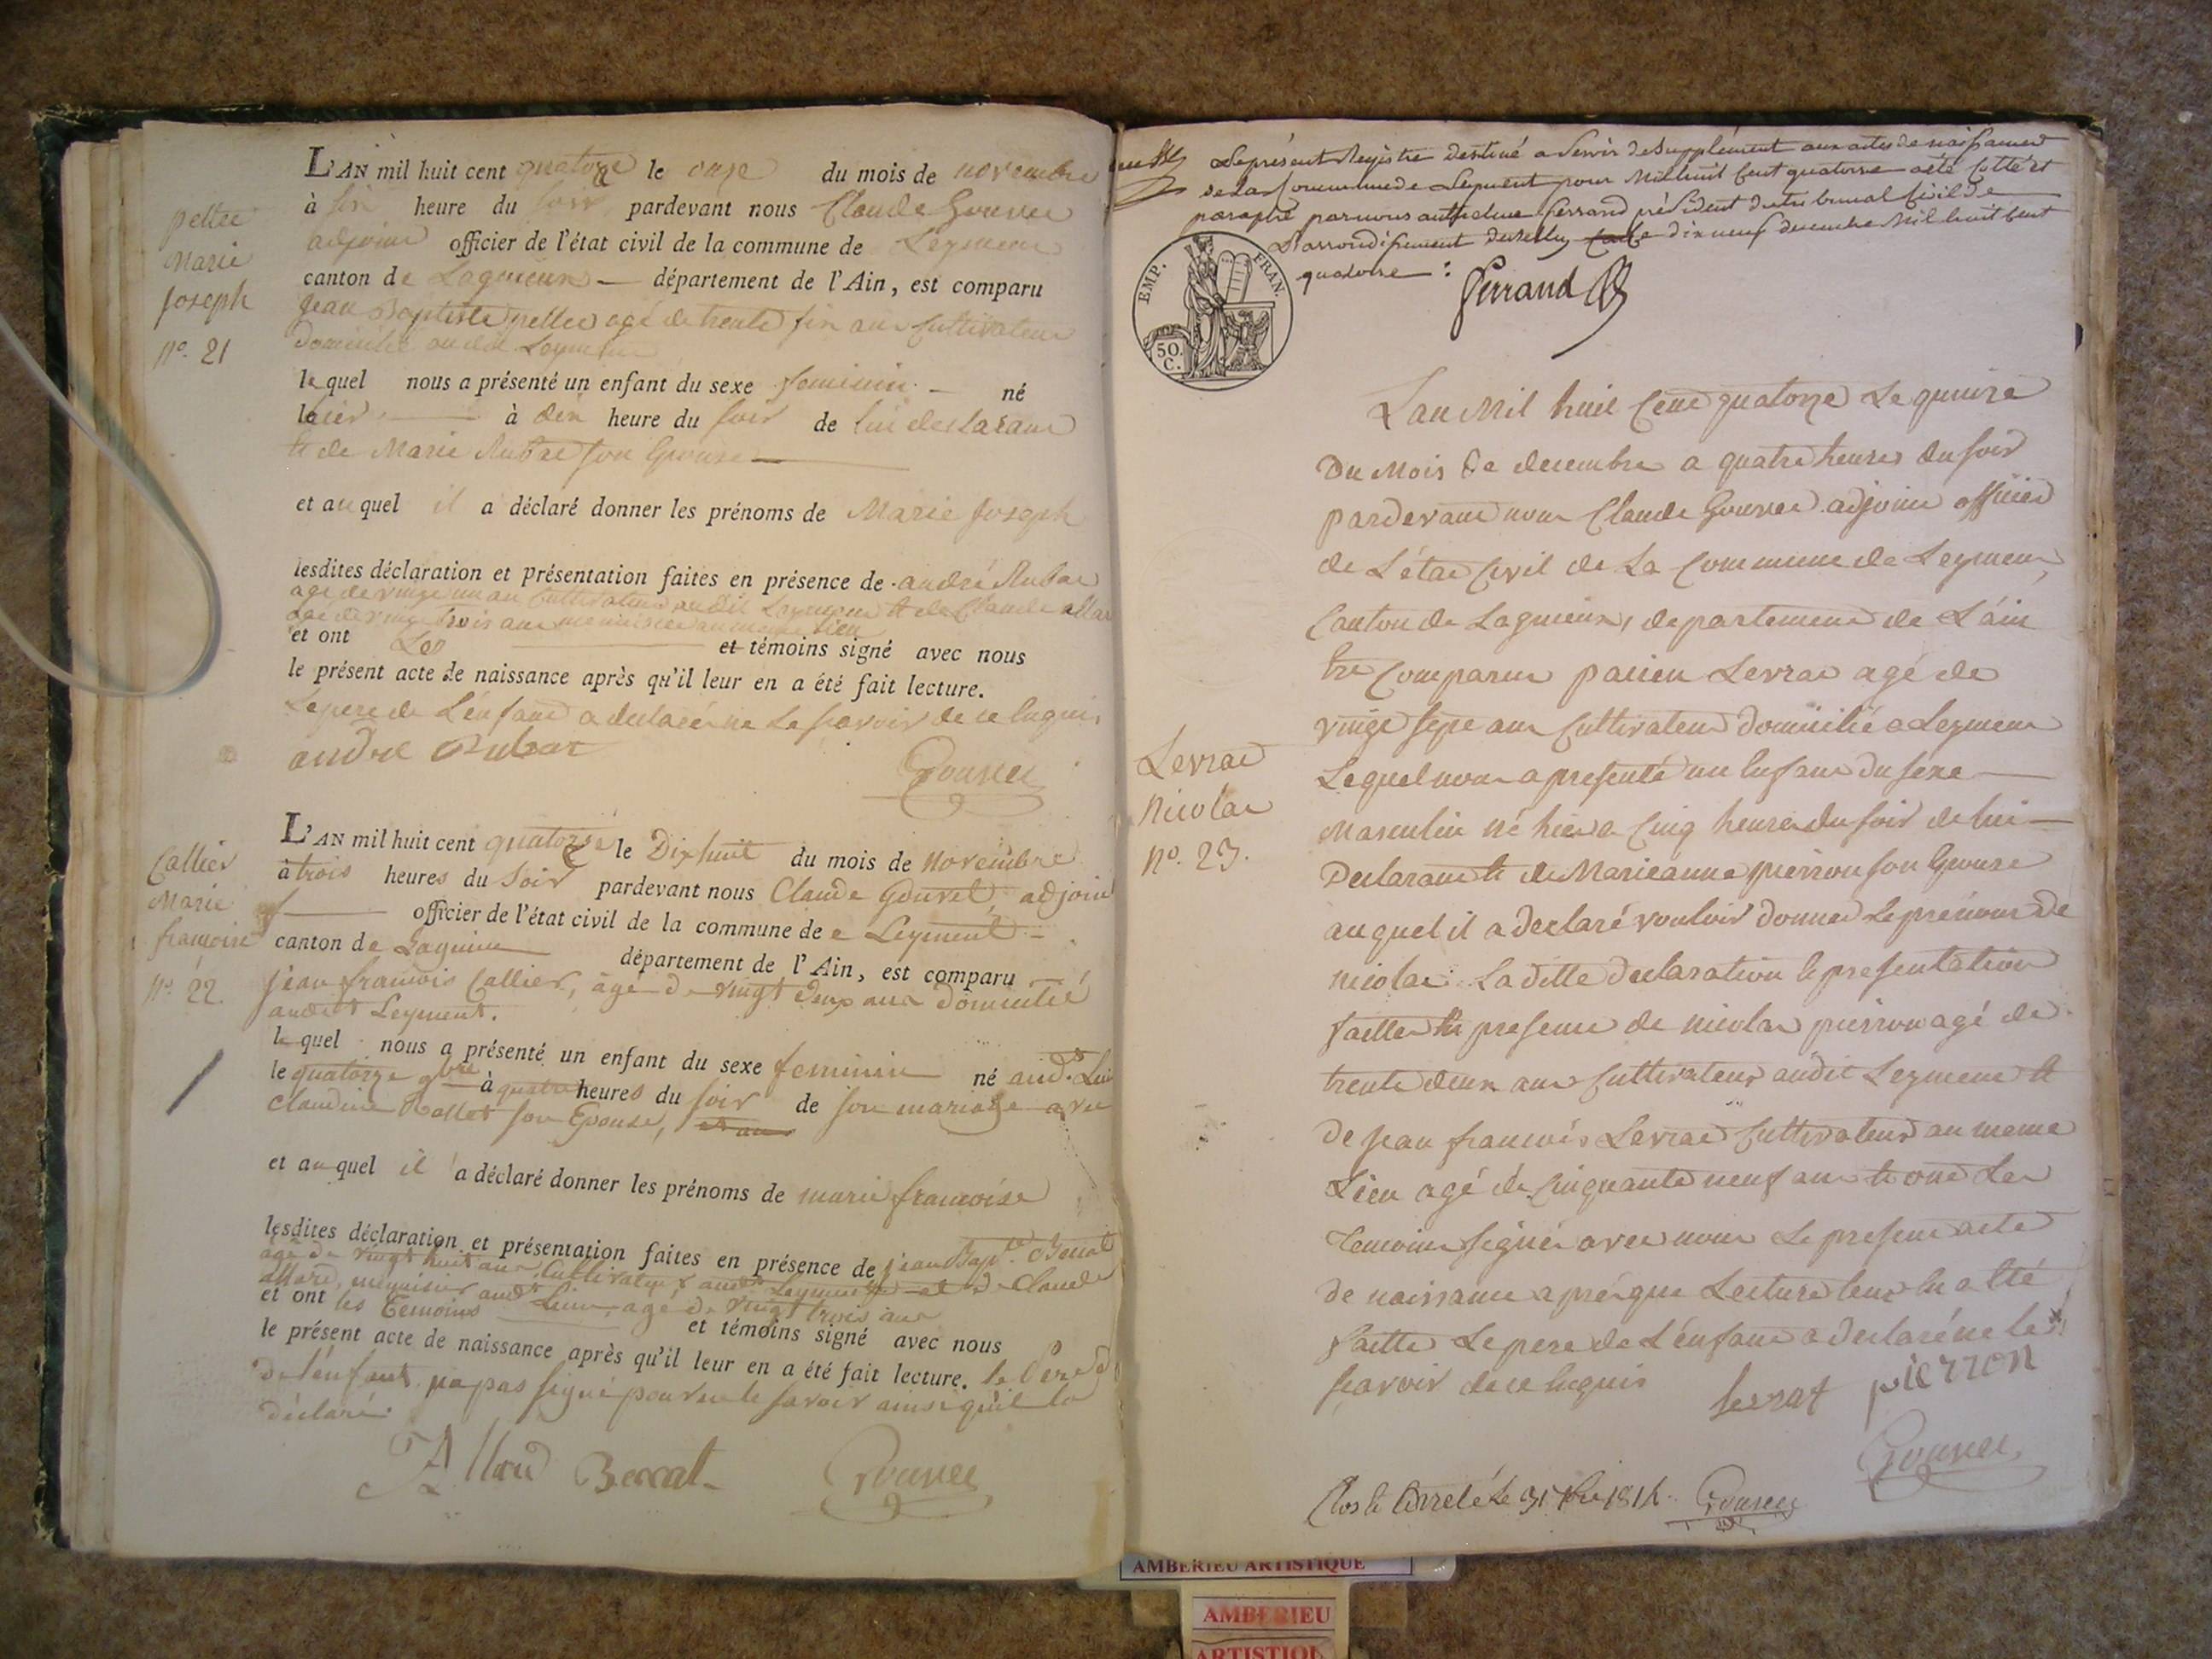 pellu
Marie
Joseph
n°. 21
L'AN mil huit cent quatorze le onze du mois de novembre
à six heure du soir pardevant nous Claude Gouvee
adjoint officier de l'état civil de la commune de Leyment
canton de Lagnieux département de l'Ain, est comparu
Jean Baptiste pellu agé de trente six ans cultivateur
domicilié audit Leyment
lequel nous a présenté un enfant du sexe feminin né
hier à dix heure du soir de lui declarant
et de Marie Rubat son Epouse
et auquel il a déclaré donner les prénoms de Marie Joseph
lesdites déclaration et présentation faites en présence de andré Rubat
agé de vingt un an cultivateur audit Leyment et de Claude allard
agé de vingt trois ans menuisier au meme lieu
et ont Les et témoins signé avec nous
le présent acte de naissance après qu'il leur en a été fait lecture.
Le pere de L'enfant a declaré ne le scavoir de ce Enquis
andre Rubat
Gouvee
Callier
Marie
francoise
n°. 22.
L'AN mil huit cent quatorze le Dix huit du mois de Novembre
à trois heures du Soir pardevant nous Claude Gouvet, adjoint
officier de l'état civil de la commune de Leyment
canton de Lagnieu département de l'Ain, est comparu
Jean francois Callier, âgé de vingt deux ans domicilié
audit Leyment.
lequel nous a présenté un enfant du sexe feminin né aud. Lieu
le quatorze 9bre à quatre heures du soir de son mariage avec
Claudine son Epouse,
et auquel il a déclaré donner les prénoms de marie francoise
lesdites déclaration et présentation faites en présence de jean Bapt. Berrat
âgé de vingt huit ans, Cultivateur, audit Leyment et de Claude
allard, menuisier audt Lieu, agé de vingt trois ans
et ont les Temoins et témoins signé avec nous
le présent acte de naissance après qu'il leur en a été fait lecture. le Pere
de l'enfant n'a pas signé pour ne le savoir ainsi qu'il la
déclaré.
Allard Berrat Gouvee
Le présent Registre destiné a servir de supplément aux actes de naissances
de la Commune de Leyment pour Mil huit Cent quatorze a été Cotté et
paraphé par nous anthelme ferrand président du tribunal Civil de
L'arrondissement de Belley ce dix neuf decembre Mil huit Cent
quatorze :
ferrand
EMP. FRAN.
50.
C.
L'an Mil huit Cent quatorze Le quinze
Du Mois de decembre a quatre heures du soir
pardevant nous Claude Gouvee adjoint officier
de L'état Civil de La Commune de Leyment,
Canton de Lagnieux, departement de L'ain
Est Comparu Levrat agé de
vingt sept ans Cultivateur domicilié a Leyment
Lequel nous a presenté un Enfant du sexe
Masculin né hier a Cinq heures du soir de lui
Declarant et de Marieanne pierron son Epouse
auquel il a declaré vouloir donner Le prénoms de
nicolas Laditte declaration et presentation
faittes En presence de nicolas pierron agé de
trente deux ans Cultivateur audit Leyment et
de jean francois Levrat Cultivateur au meme
Lieu agé de Cinquante neuf ans et ont Les
Temoins signés avec nous Le present acte
de naissance aprés que Lecture leur En a été
faitte Le pere de L'enfant a declaré ne le
scavoir de ce Enquis
Levrat
Nicolas
n°. 23.
levrat pierron
Gouvee
Clos et Arreté Le 31 Xbre 1814. Gouvee
AMBERIEU ARTISTIQUE
AMBERIEU
ARTISTIQU